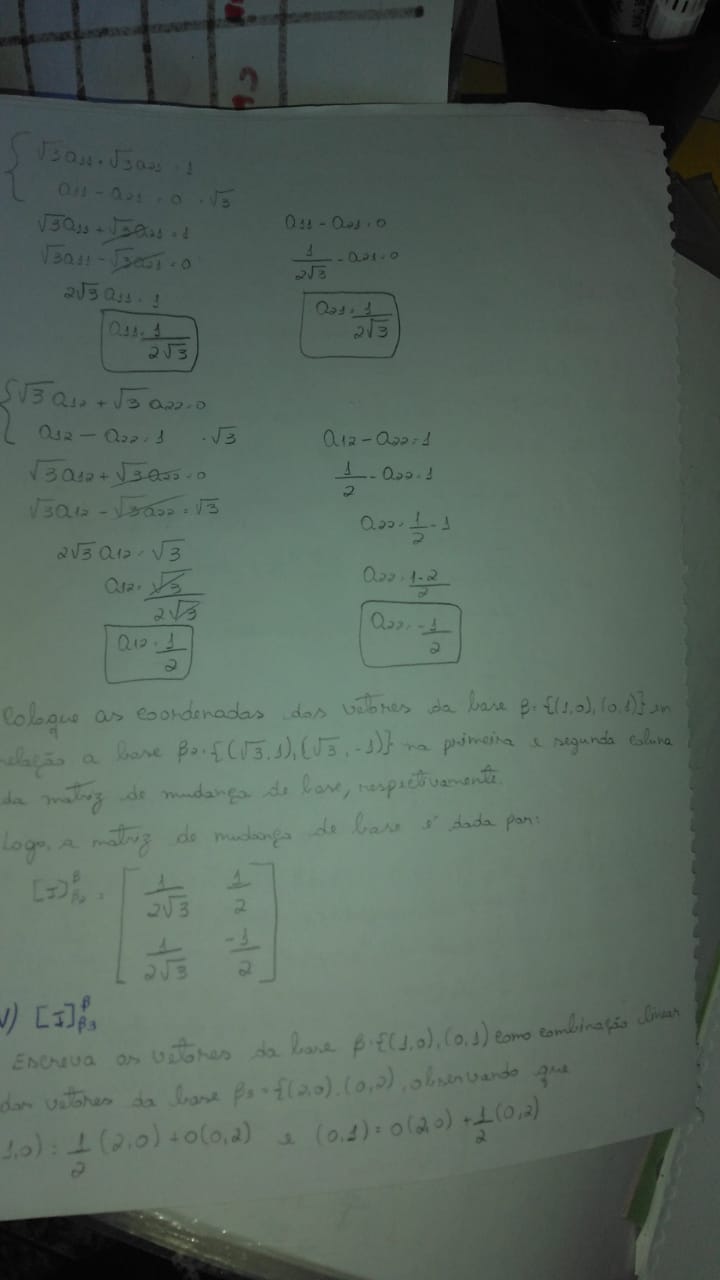 √3a₁₁ + √3a₂₁ = 1
a₁₁ - a₂₁ = 0 · √3
√3a₁₁ + √3a₂₁ = 1
√3a₁₁ - √3a₂₁ = 0
2√3 a₁₁ = 1
a₁₁ = 1/2√3
a₁₁ - a₂₁ = 0
1/2√3 - a₂₁ = 0
a₂₁ = 1/2√3
√3 a₁₂ + √3 a₂₂ = 0
a₁₂ - a₂₂ = 1 · √3
√3a₁₂ + √3a₂₂ = 0
√3a₁₂ - √3a₂₂ = √3
2√3 a₁₂ = √3
a₁₂ = √3/2√3
a₁₂ = 1/2
a₁₂ - a₂₂ = 1
1/2 - a₂₂ = 1
a₂₂ = 1/2 - 1
a₂₂ = 1-2/2
a₂₂ = -1/2
Coloque as coordenadas dos vetores da base β = {(1,0),(0,1)} em
relação a base β₂ = {(√3,1),(√3,-1)} na primeira e segunda coluna
da matriz de mudança de base, respectivamente.
Logo, a matriz de mudança de base é dada por:
[I]^β_β₂ = [ 1/2√3 1/2
1/2√3 -1/2 ]
V) [I]^β_β₃
Escreva os vetores da base β = {(1,0),(0,1) como combinação linear
dos vetores da base β₃ = {(2,0),(0,2), observando que
1,0) = 1/2 (2,0) + 0(0,2) e (0,1) = 0(2,0) + 1/2 (0,2)